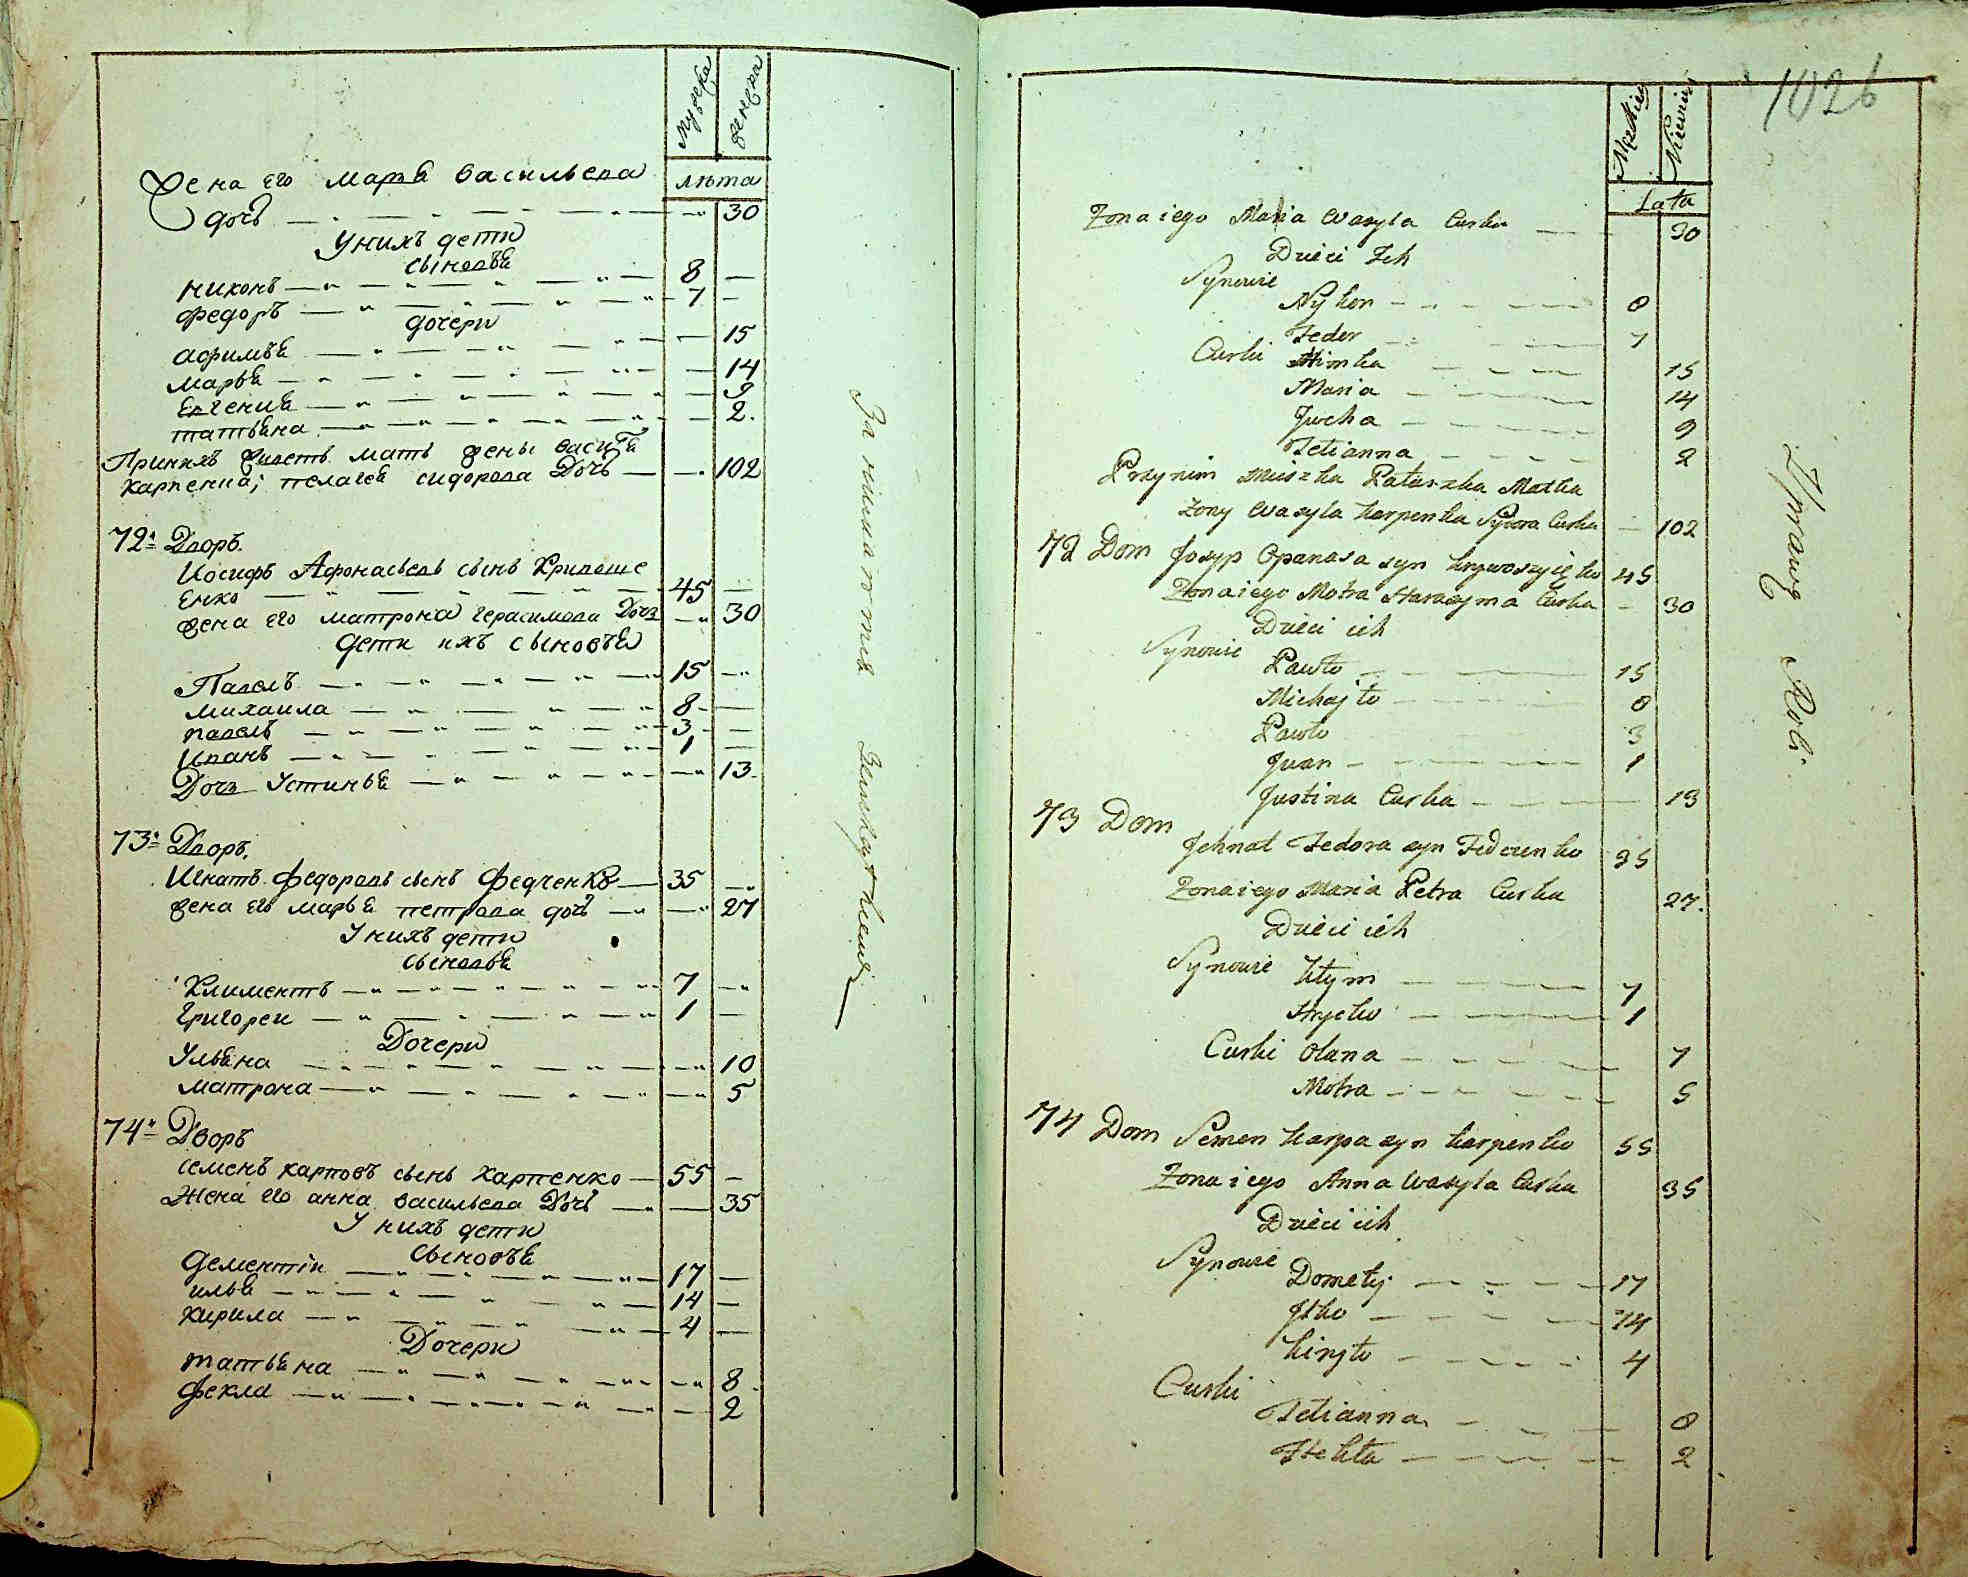 Мужеска
Женска
лѣта
Жена его Марья Васильева
дочь 30
У нихъ дети
сыновья
Никонъ 8
Федоръ 7
дочери
Афимья 15
Марья 14
Евгения 9
татьяна 2
мать жены васи
Карпенка, пелагея сидорова Дочь 102
72й Дворъ.
Иосифъ Афонасьевъ сынъ Кривоше
енко 45
жена его матрона герасимова Дочь 30
дети ихъ сыновья
Павелъ 15
михаила 8
павелъ 3
Иванъ 1
Дочь Устинья 13
73й Дворъ.
Игнатъ Федоровъ сынъ Федченко 35
жена его марья петрова дочь 27
У нихъ дети
сыновья
Климентъ 7
Григореи 1
Дочери
Ульяна 10
матрона 5
74й Дворъ
семенъ карповъ сынъ Карпенко 55
Жена его анна васильева Дочь 35
У нихъ дети
сыновья
Дементiи 17
илья 14
Кирила 4
Дочери
татьяна 8
Фекла 2
Занимаются
1026
Męzkiey
Lata
Zona iego Maria Wasyla Curka 30
Dzieci Ich
Synowie
Nykon 8
Fedor 7
Curki Himka 15
Maria 14
Jwcha 9
Tetianna 2
Przynim Mieszka Palaszka Matka
Zony Wasyla Karpenka Sydora Curka 102
72 Dom Josyp Opanasa syn Krzywoszyięko 45
Zona iego Motra Harasyma Curka 30
Dzieci ich
Synowie
Pawło 15
Michajło 8
Pawło 3
Jwan 1
Justina Curka 13
73 Dom
Jehnat Fedora syn Fedczenko 35
Zona iego Maria Petra Curka 27.
Dzieci ich
Synowie Kłym 7
Hryćko 1
Curki Olana 7
Motra 5
74 Dom Semen Karpa syn Karpenko 55
Zona iego Anna Wasyla Curka 35
Dzieci ich
Synowie
Dometij 17
Jłko 14
Kiryło 4
Curki
Tetianna 8
Hekła 2
Uprawą Roli.